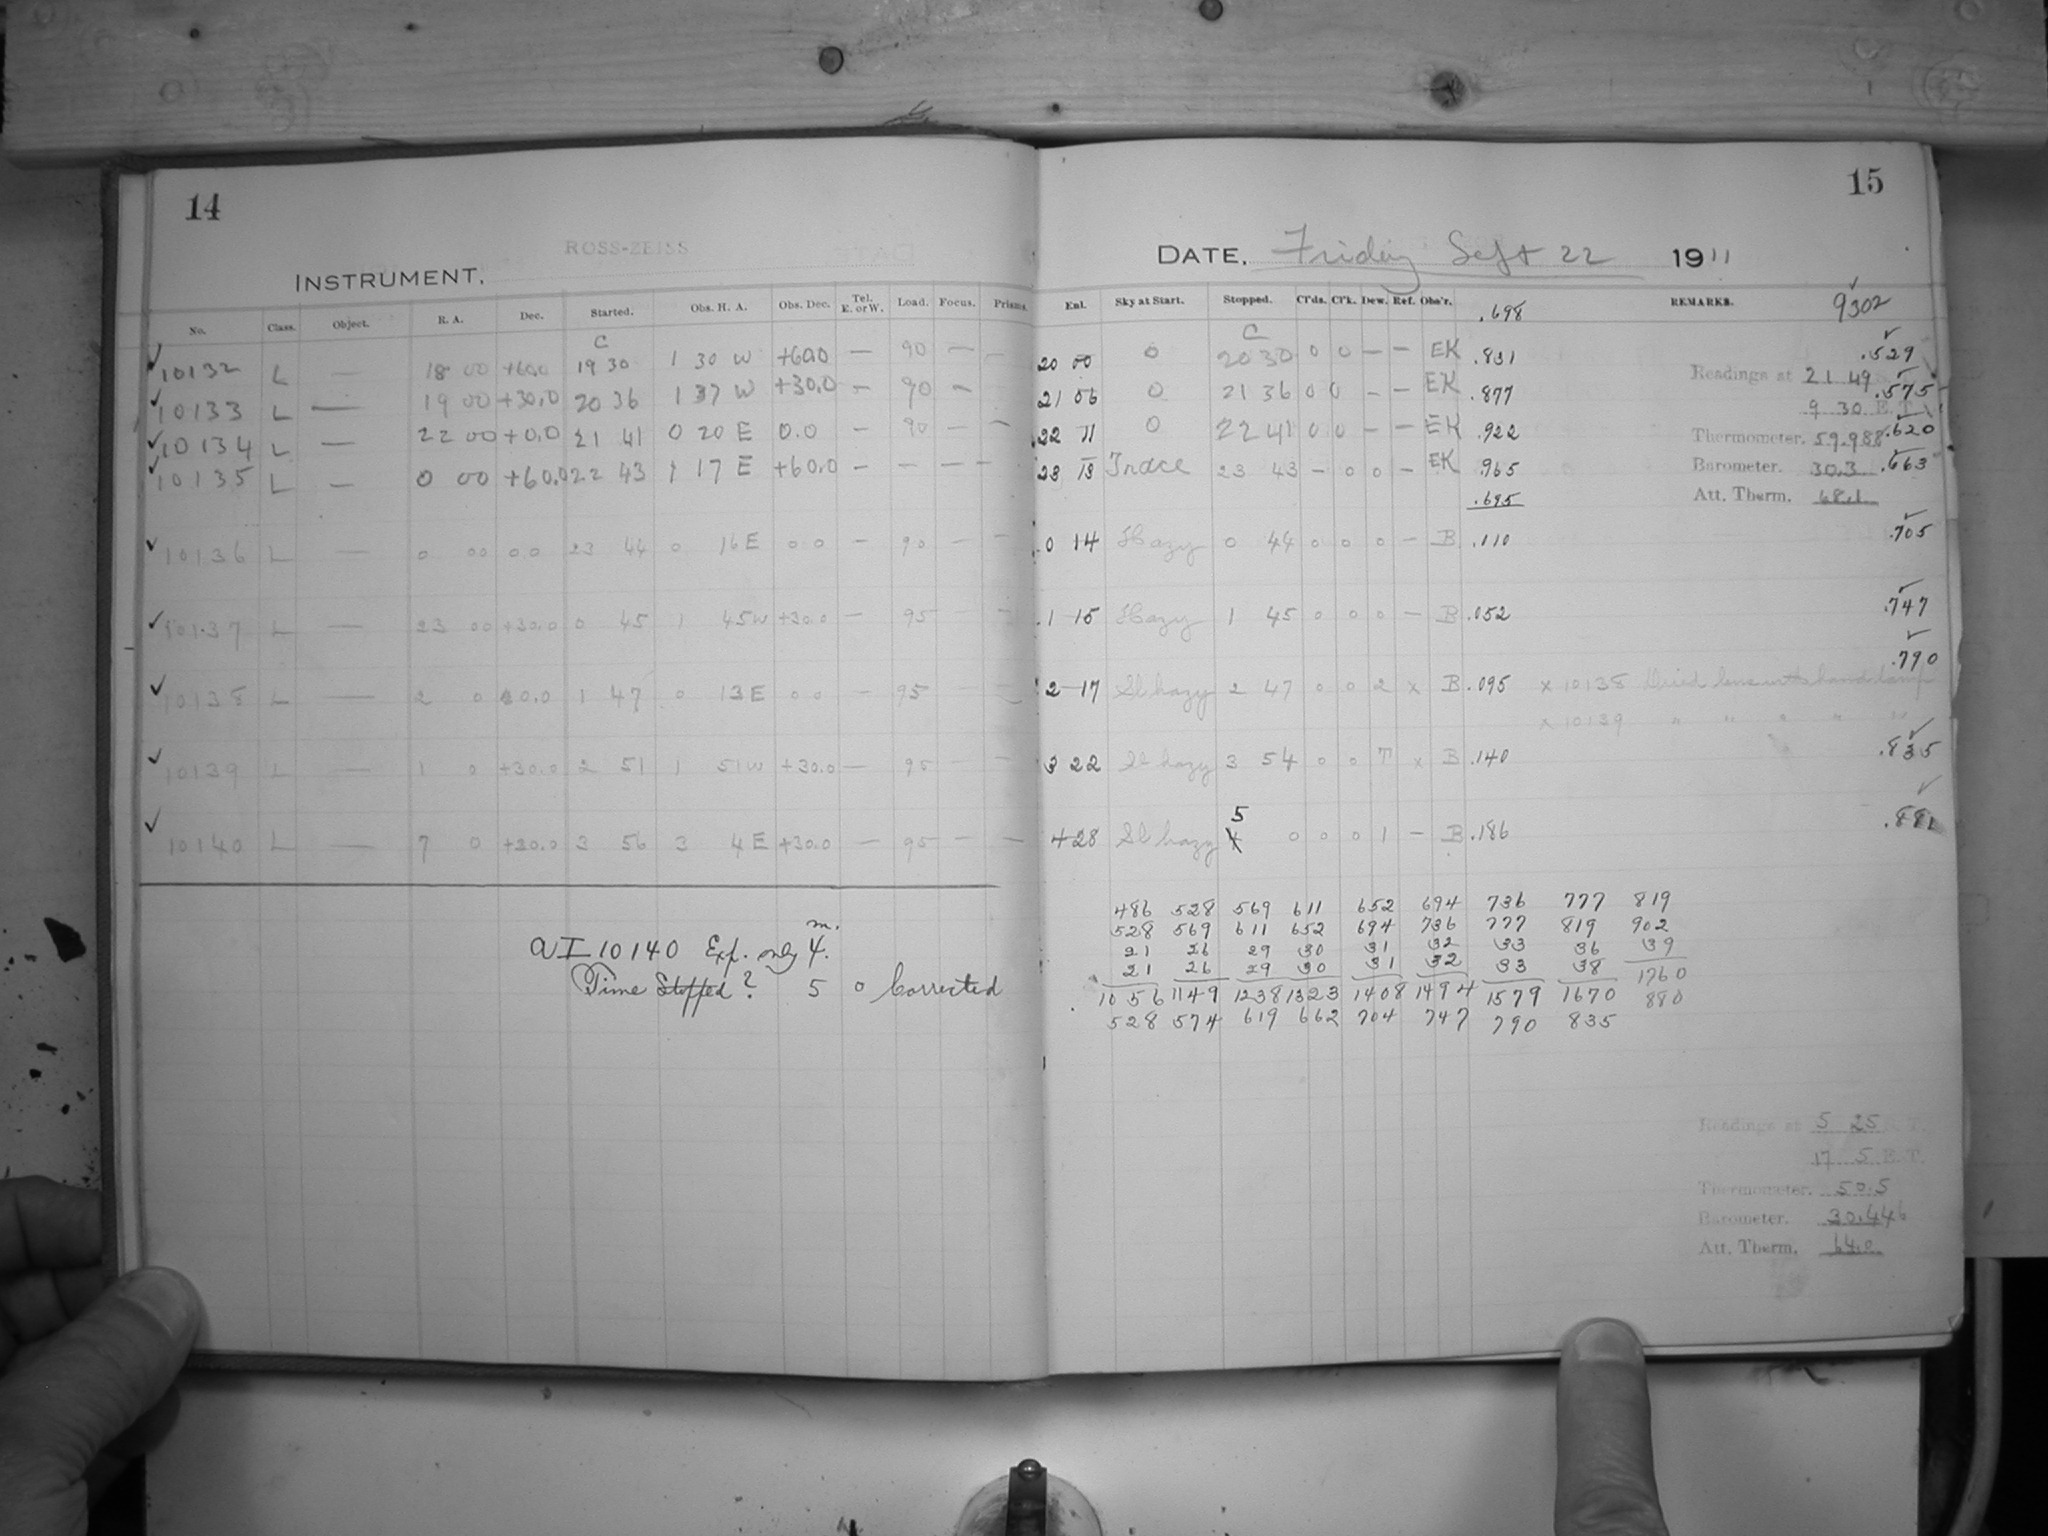 14
ROSS-ZEISS
INSTRUMENT.
No. Class. Object. R. A. Dec. Started. Obs. H. A. Obs. Dec. Tel. E. or W. Load. Focus. Prisms.
C
10132 L — 18 00 +60.0 19 30 1 30 W +60.0 — 90 — —
10133 L — 19 00 +30.0 20 36 1 37 W +30.0 — 90 —
10134 L — 22 00 +0.0 21 41 0 20 E 0.0 — 90 — —
10135 L — 0 00 +60.0 22 43 1 17 E +60.0 — — — —
10136 L — 0 00 0.0 23 44 0 16 E 0 0 — 90 — —
10137 L — 23 00 +30.0 0 45 1 45 W +30.0 — 95 — —
10138 L — 2 0 0.0 1 47 0 13 E 0 0 — 95 — —
10139 L — 1 0 +30.0 2 51 1 51 W +30.0 — 95 — —
10140 L — 7 0 +30.0 3 56 3 4 E +30.0 — 95 — —
m.
10140 Exp. only 4.
Time Stopped? 5 0 Corrected
15
DATE, Friday Sept 22 1911
Exl. Sky at Start. Stopped. Cl'ds. Cl'k. Dew. Ref. Obs'r. .698 REMARKS. 9302
C
20 00 0 20 30 0 0 — — EK .831 .529
Readings at 21 49 .575
21 06 0 21 36 0 0 — — EK .877
9 30 E.T.
22 11 0 22 41 0 0 — — EK .922 Thermometer. 59.988 .620
23 13 Trace 23 43 — 0 0 — EK .965 Barometer. 30.3 .663
.695 Att. Therm. 68.1
0 14 Hazy 0 44 0 0 0 — B .110 .705
1 15 Hazy 1 45 0 0 0 — B .052 .747
.790
2 17 Sl hazy 2 47 0 0 2 x B .095 x 10138 Dried lens with hand lamp
x 10139 " " " " "
3 22 Sl hazy 3 54 0 0 T x B .140 .835
5
4 28 Sl hazy 4 0 0 0 1 — B .186 .881
486 528 569 611 652 694 736 777 819
528 569 611 652 694 736 777 819 902
21 26 29 30 31 32 33 36 39
21 26 29 30 31 32 33 38 1760
1056 1149 1238 1323 1408 1494 1579 1670 880
528 574 619 662 704 747 790 835
Readings at 5 25
17 5 E.T.
Thermometer. 50.5
Barometer. 30.446
Att. Therm. 64.0